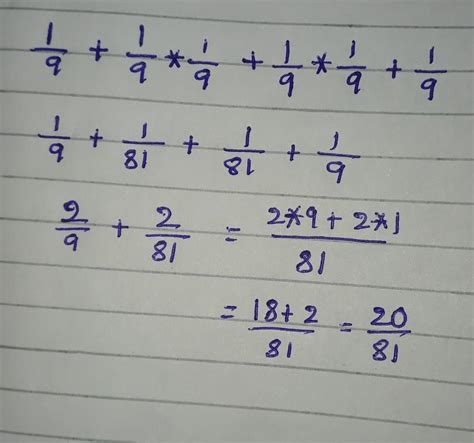 1/9 + 1/9 * 1/9 + 1/9 * 1/9 + 1/9
1/9 + 1/81 + 1/81 + 1/9
2/9 + 2/81 = 2*9 + 2*1/81
= 18+2/81 = 20/81